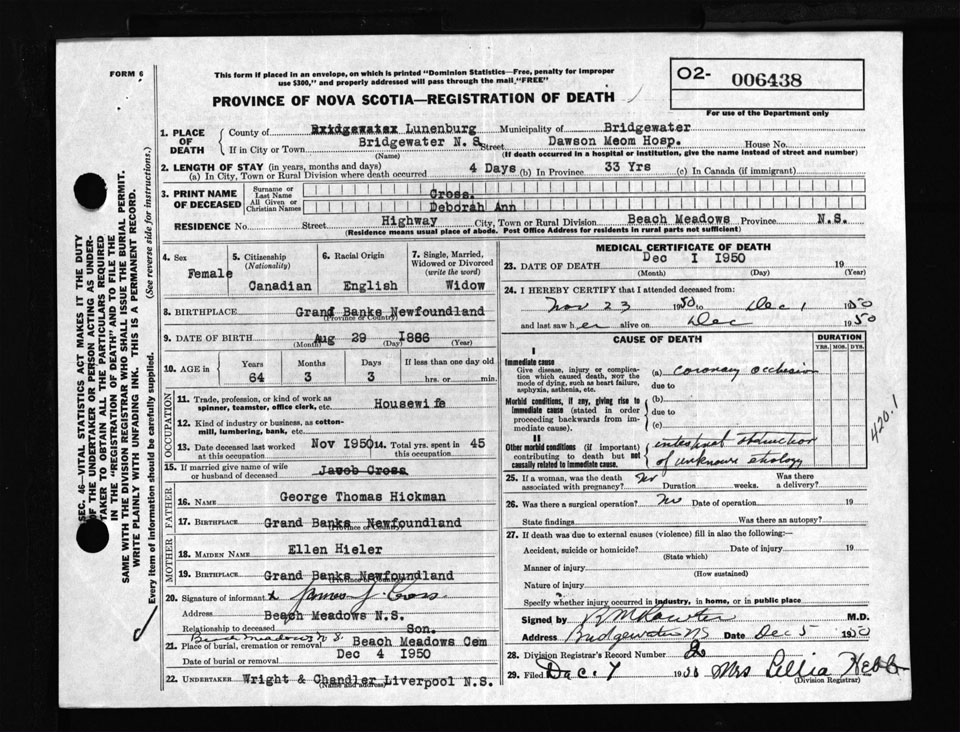 FORM 6
This form if placed in an envelope, on which is printed "Dominion Statistics—Free, penalty for improper
use $300," and properly addressed will pass through the mail "FREE"
O2- 006438
For use of the Department only
PROVINCE OF NOVA SCOTIA—REGISTRATION OF DEATH
1. PLACE OF DEATH
County of Bridgewater Lunenburg Municipality of Bridgewater
If in City or Town Bridgewater N.S. Street Dawson Meom Hosp. House No.
(Name) (If death occurred in a hospital or institution, give the name instead of street and number)
2. LENGTH OF STAY (in years, months and days)
(a) In City, Town or Rural Division where death occurred 4 Days (b) In Province 33 Yrs (c) In Canada (if immigrant)
3. PRINT NAME OF DECEASED
Surname or Last Name Cross.
All Given or Christian Names Deborah Ann
RESIDENCE No. Street Highway City, Town or Rural Division Beach Meadows Province N.S.
(Residence means usual place of abode. Post Office Address for residents in rural parts not sufficient)
4. Sex Female
5. Citizenship (Nationality) Canadian
6. Racial Origin English
7. Single, Married, Widowed or Divorced (write the word) Widow
8. BIRTHPLACE Grand Banks Newfoundland
(Province or Country)
9. DATE OF BIRTH Aug 29 1886
(Month) (Day) (Year)
10. AGE in Years Months Days If less than one day old
64 3 3 hrs. or min.
OCCUPATION
11. Trade, profession, or kind of work as
spinner, teamster, office clerk, etc. Housewife
12. Kind of industry or business, as cotton-
mill, lumbering, bank, etc.
13. Date deceased last worked at this occupation Nov 1950 14. Total yrs. spent in this occupation 45
15. If married give name of wife
or husband of deceased Jacob Cross
FATHER
16. NAME George Thomas Hickman
17. BIRTHPLACE Grand Banks Newfoundland
(Province or Country)
MOTHER
18. MAIDEN NAME Ellen Hieler
19. BIRTHPLACE Grand Banks Newfoundland
(Province or Country)
20. Signature of informant x James J. Cross
Address Beach Meadows N.S.
Relationship to deceased Son.
Beach Meadows N.S.
21. Place of burial, cremation or removal Beach Meadows Cem
Date of burial or removal Dec 4 1950
22. UNDERTAKER Wright & Chandler Liverpool N.S.
(Name and address)
MEDICAL CERTIFICATE OF DEATH
23. DATE OF DEATH Dec I 1950 19
(Month) (Day) (Year)
24. I HEREBY CERTIFY that I attended deceased from:
Nov 23 1950 to Dec 1 1950
and last saw her alive on Dec 1950
CAUSE OF DEATH
DURATION
YRS. MOS. DYS.
I
Immediate cause
Give disease, injury or complica-
tion which caused death, NOT the
mode of dying, such as heart failure,
asphyxia, asthenia, etc.
(a) coronary occlusion
due to
Morbid conditions, if any, giving rise to
immediate cause (stated in order
proceeding backwards from im-
mediate cause).
(b)
due to
(c)
II
Other morbid conditions (if important)
contributing to death but not
causally related to immediate cause.
intestinal obstruction
of unknown etiology
420.1
25. If a woman, was the death associated with pregnancy? No Duration weeks. Was there a delivery?
26. Was there a surgical operation? No Date of operation 19
State findings Was there an autopsy?
27. If death was due to external causes (violence) fill in also the following:—
Accident, suicide or homicide? Date of injury 19
(State which)
Manner of injury
(How sustained)
Nature of injury
Specify whether injury occurred in industry, in home, or in public place
Signed by M.D.
Address Bridgewater NS Date Dec 5 1950
28. Division Registrar's Record Number
29. Filed Dec. 7 1950 Mrs Lellia Hebb
(Division Registrar)
SEC. 46—VITAL STATISTICS ACT MAKES IT THE DUTY
OF THE UNDERTAKER OR PERSON ACTING AS UNDER-
TAKER TO OBTAIN ALL THE PARTICULARS REQUIRED
IN THE "REGISTRATION OF DEATH" AND TO FILE THE
SAME WITH THE DIVISION REGISTRAR WHO SHALL ISSUE THE BURIAL PERMIT.
WRITE PLAINLY WITH UNFADING INK. THIS IS A PERMANENT RECORD.
Every item of information should be carefully supplied. (See reverse side for instructions.)